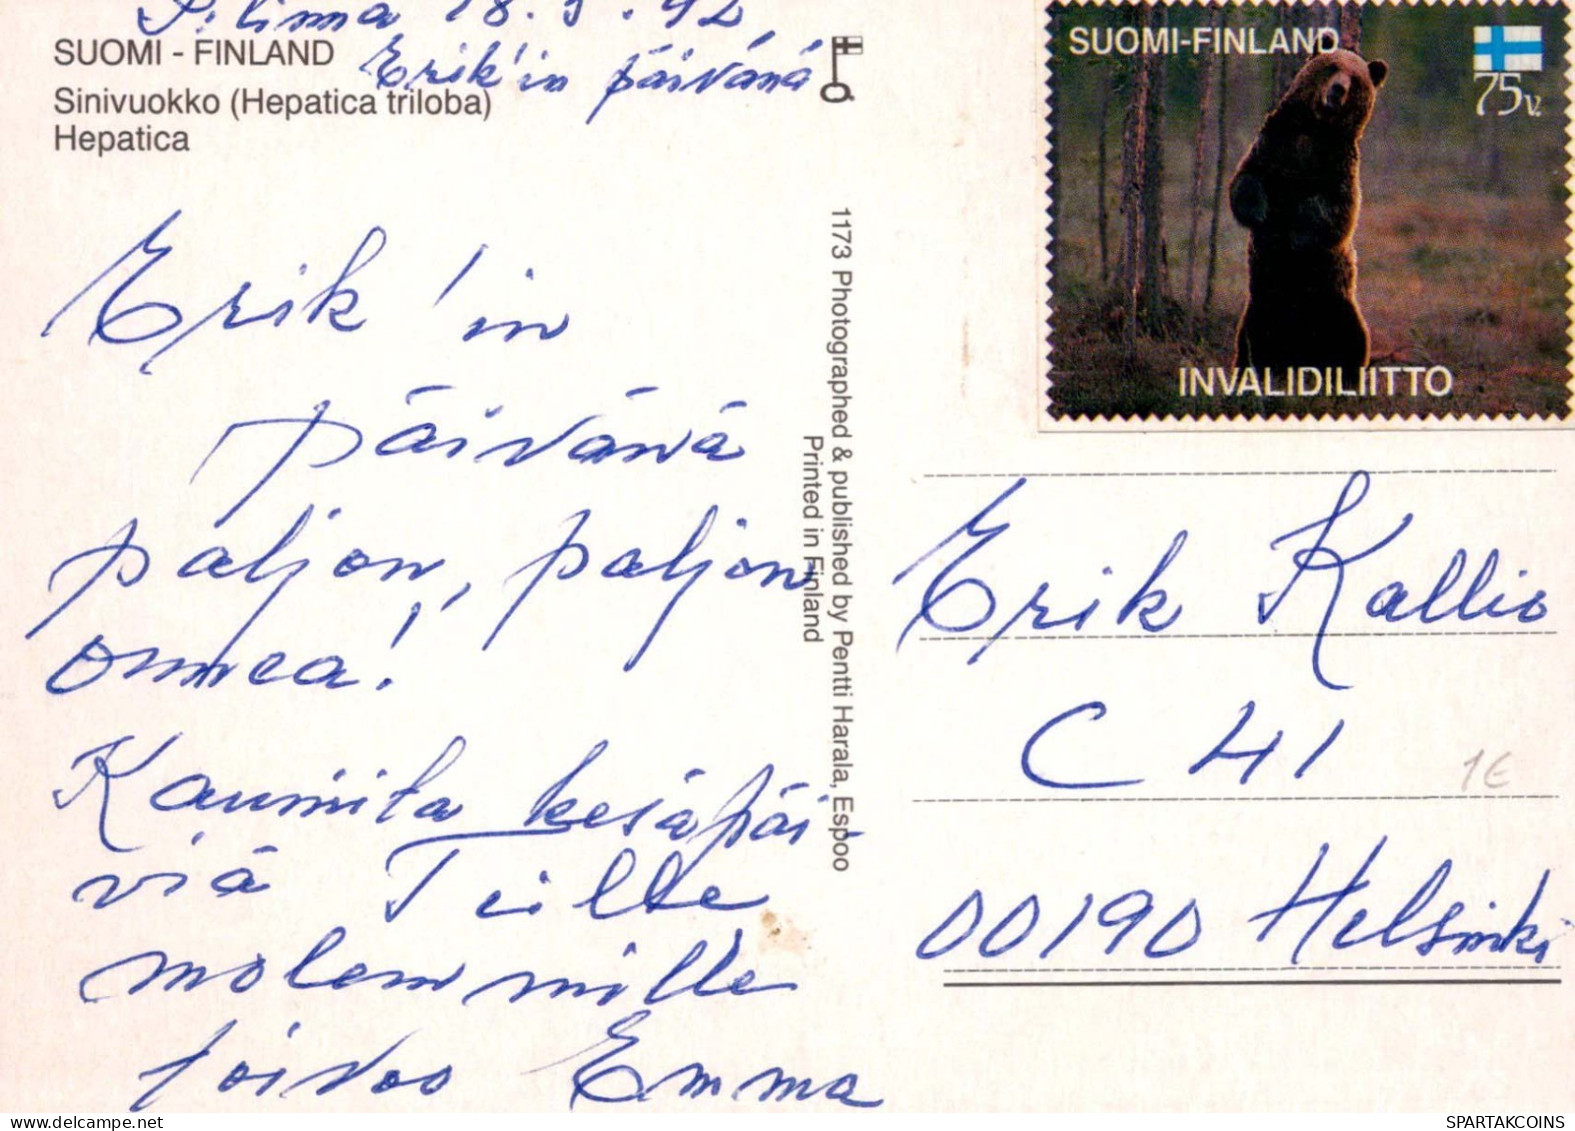 18.5.92
SUOMI - FINLAND
Erik'in päivänä
Sinivuokko (Hepatica triloba)
Hepatica
SUOMI-FINLAND
75v.
INVALIDILIITTO
Erik'in
päivänä
paljon, paljon
onnea!
Kauniita kesäpäi-
viä Teille
molemmille
toivoo Emma
1173 Photographed & published by Pentti Harala, Espoo
Printed in Finland
Erik Kallio
C 41
1€
00190 Helsinki
www.delcampe.net
SPARTAKCOINS